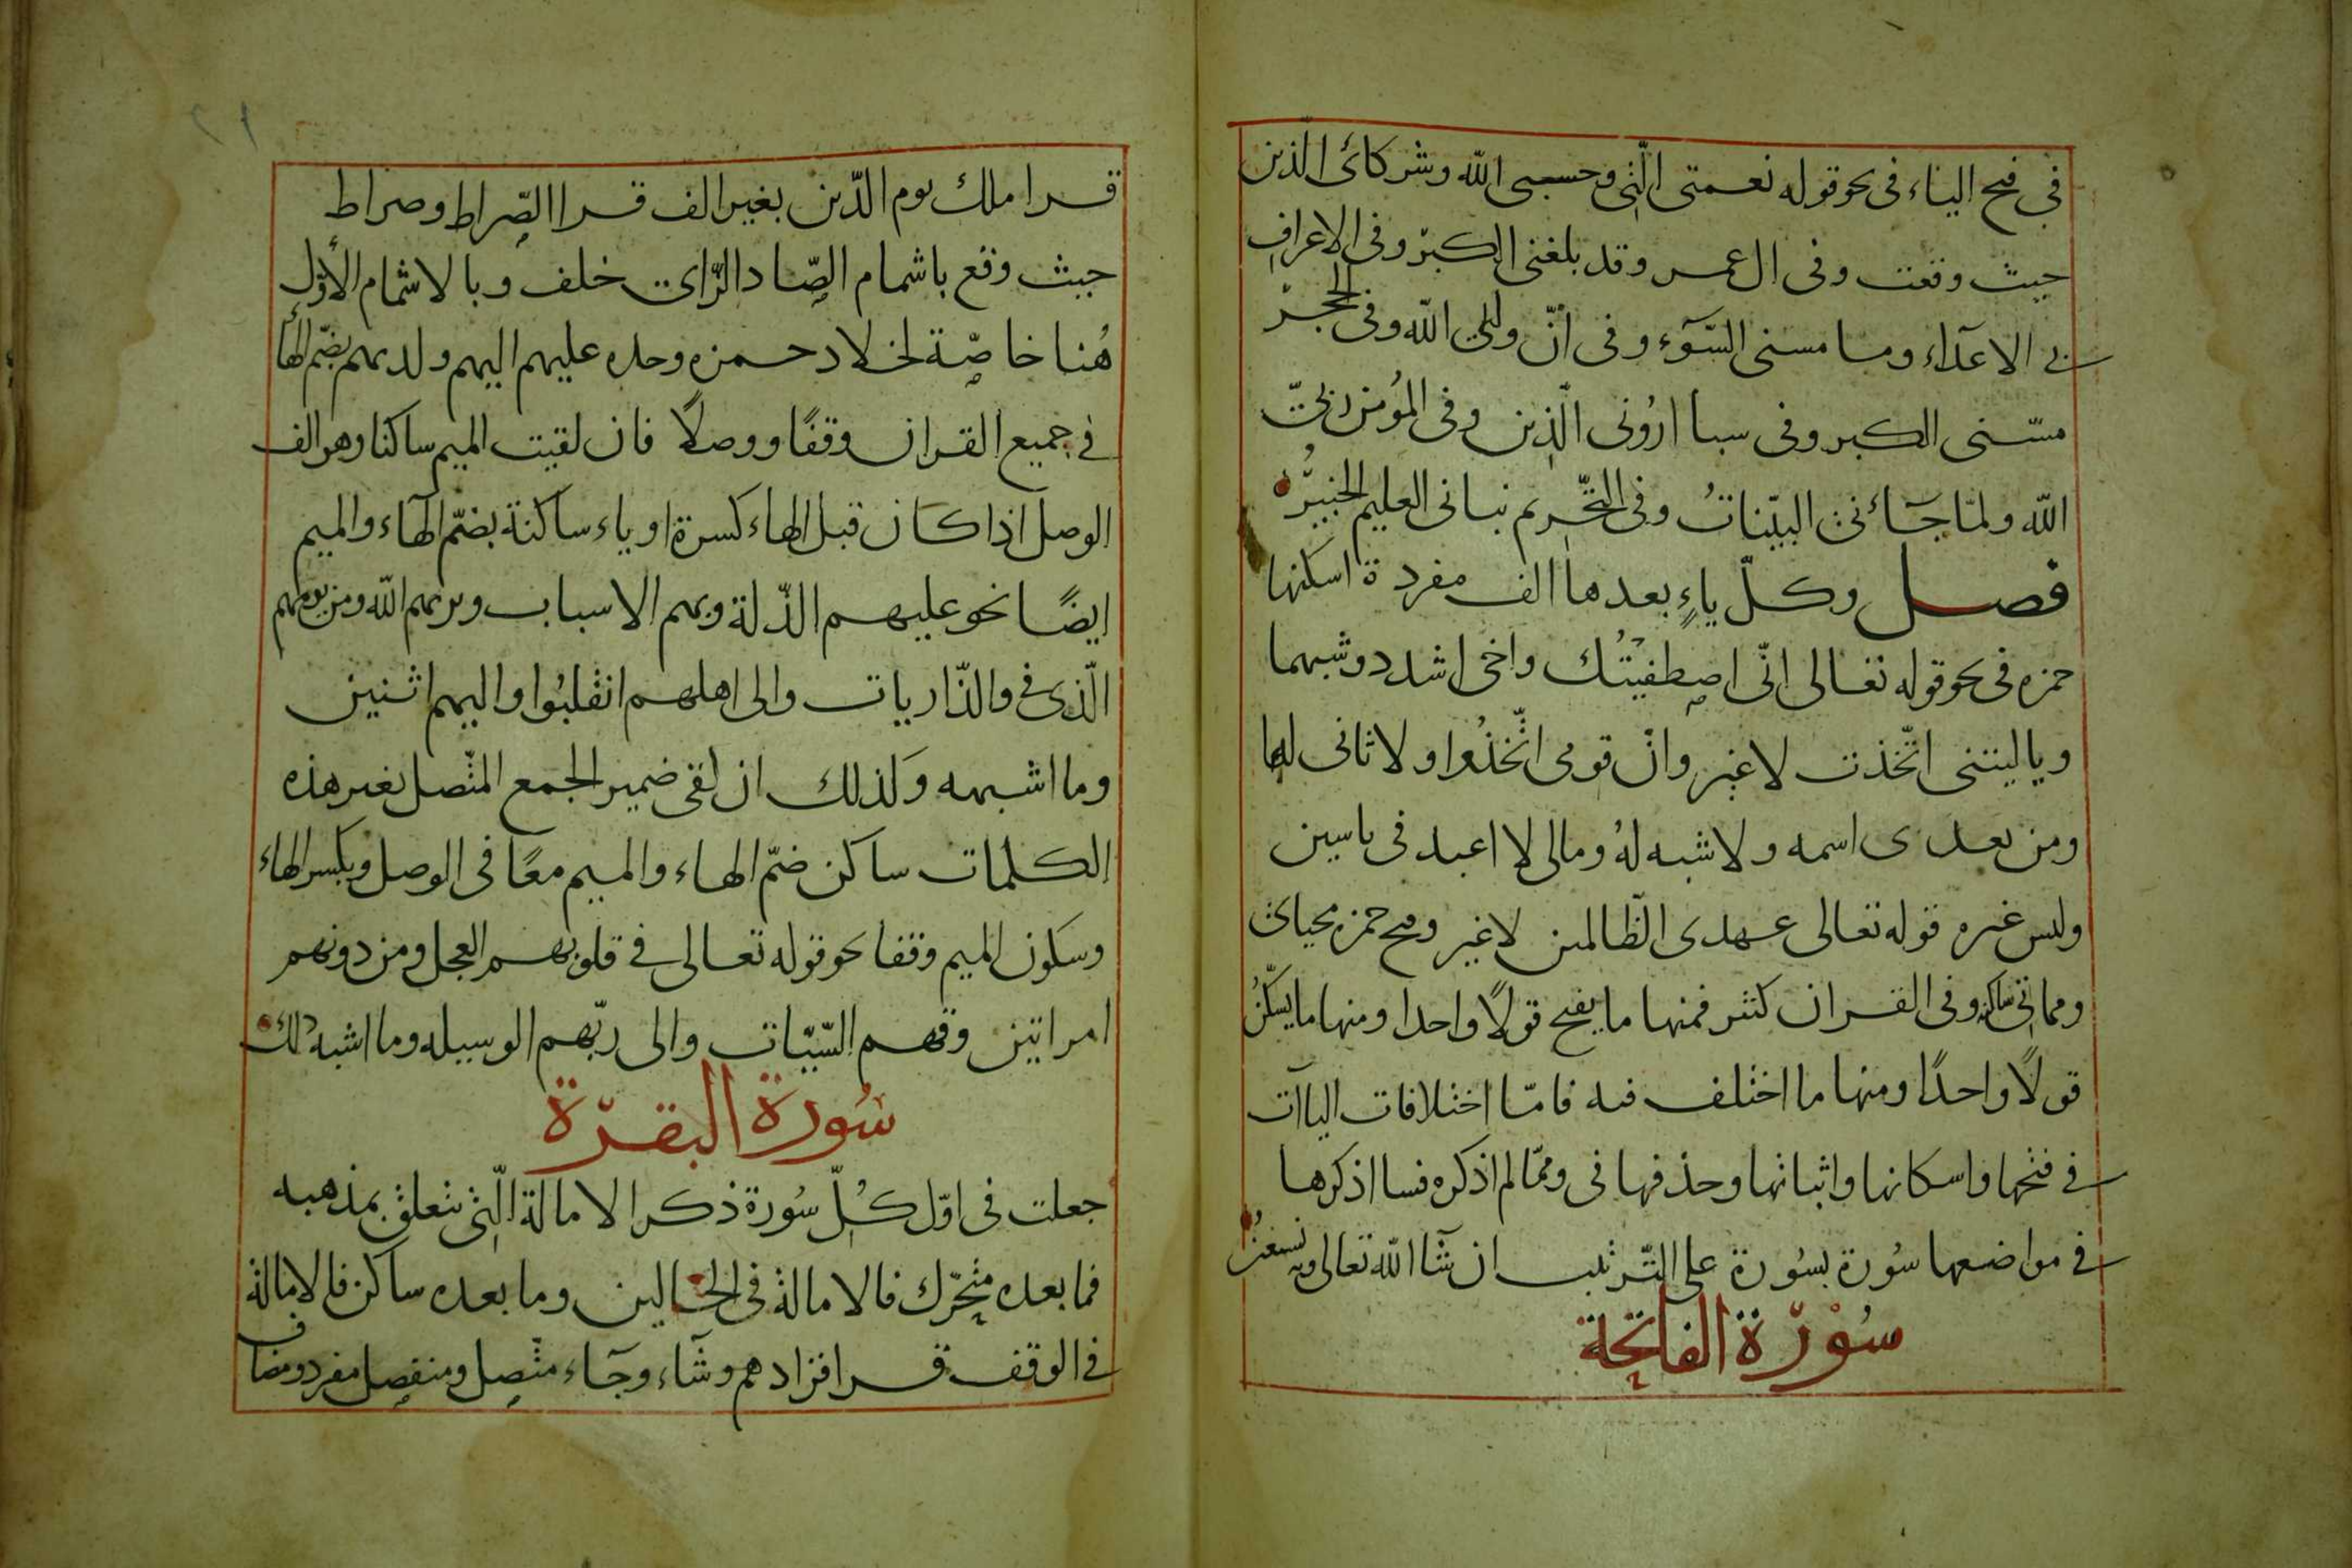 في فتح الياء في نحو قوله نعمتى الّتى وحسبى الله وشركائ الّذين
حيث وقعت وفى ال عمر وقد بلغنى الكبر وفى الاعراف
بى الاعدآء وما مسنى السّوٓء وفى انّ ولىّ الله وفى الحجر
مسّنى الكبر وفى سبا ارُونى الّذين وفى المؤمن ربىّ
الله ولمّا جآءنى البيّناتُ وفى التحّريم نبانى العليم الخبيرُ
فصل وكلّ ياءٍ بعدها الف مفردة اسكنها
حمزه فى نحو قوله تعالى انّى اصطفيتُك واخى اشدد وشبهما
ويا ليتنى اتّخذت لا غير وانّ قومى اتّخذُوا ولا ثانى لها
ومن بعدى اسمه ولا شبه لهُ ومالى لا اعبد فى ياسين
وليس غيره قوله تعالى عهدى الظّالمين لا غير وفتح حمزه محياى
ومماتى ساكنه وفى القران كثير فمنها ما يفتح قولًا واحدا ومنها ما يسكّنُ
قولًا واحدًا ومنها ما اختلف فيه فامّا اختلافات الياآت
فى فتحها واسكانها واثباتها وحذفها فى وممّا لم اذكره فسا اذكرها
فى مواضعها سُورة بسُورة على التّرتيب ان شآ الله تعالى وبه نستعينُ
سُوْرَة الفاتحِة
قرا ملك يوم الدّين بغير الف قرا الصِّراط وصراط
حيث وقع باشمام الصّاد الزّاى خلف وبالاشمام الأوّل
هُنا خاصّة لخلاد حمزه وحده عليهم اليهم ولديهم بضّم الهأ
فى جميع القران وقفًا ووصلًا فان لقيت الميم ساكنا وهو الف
الوصل اذا كان قبل الهاء كسرة او ياء ساكنة بضمّ الهآء والميم
ايضًا نحو عليهم الذّلة وبهم الاسباب ويريهم الله ومن يومهم
الّذى فى والذّاريات والى اهلهم انقلبُوا واليهم اثنين
وما اشبهه وكذلك ان لقى ضمير الجمع المتّصل بغير هذه
الكلمات ساكن ضمّ الهاء والميم معًا فى الوصل وبكسر الهاء
وسكون الميم وقفا نحو قوله تعالى فى قلوبهم العجل ومن دونهم
امراتين وقهم السّيّات والى ربّهم الوسيله وما اشبه ذلك
سُورة البقرَة
جعلت فى اوّل كلّ سُورة ذكر الامالة الّتى تتعلق بمذهبه
فما بعده متحّرك فالامالة فى الحالين وما بعده ساكن فالامالة
فى الوقف قرا فزادهم وشآء وجآء متّصل ومنفصل مفرد ومضاف